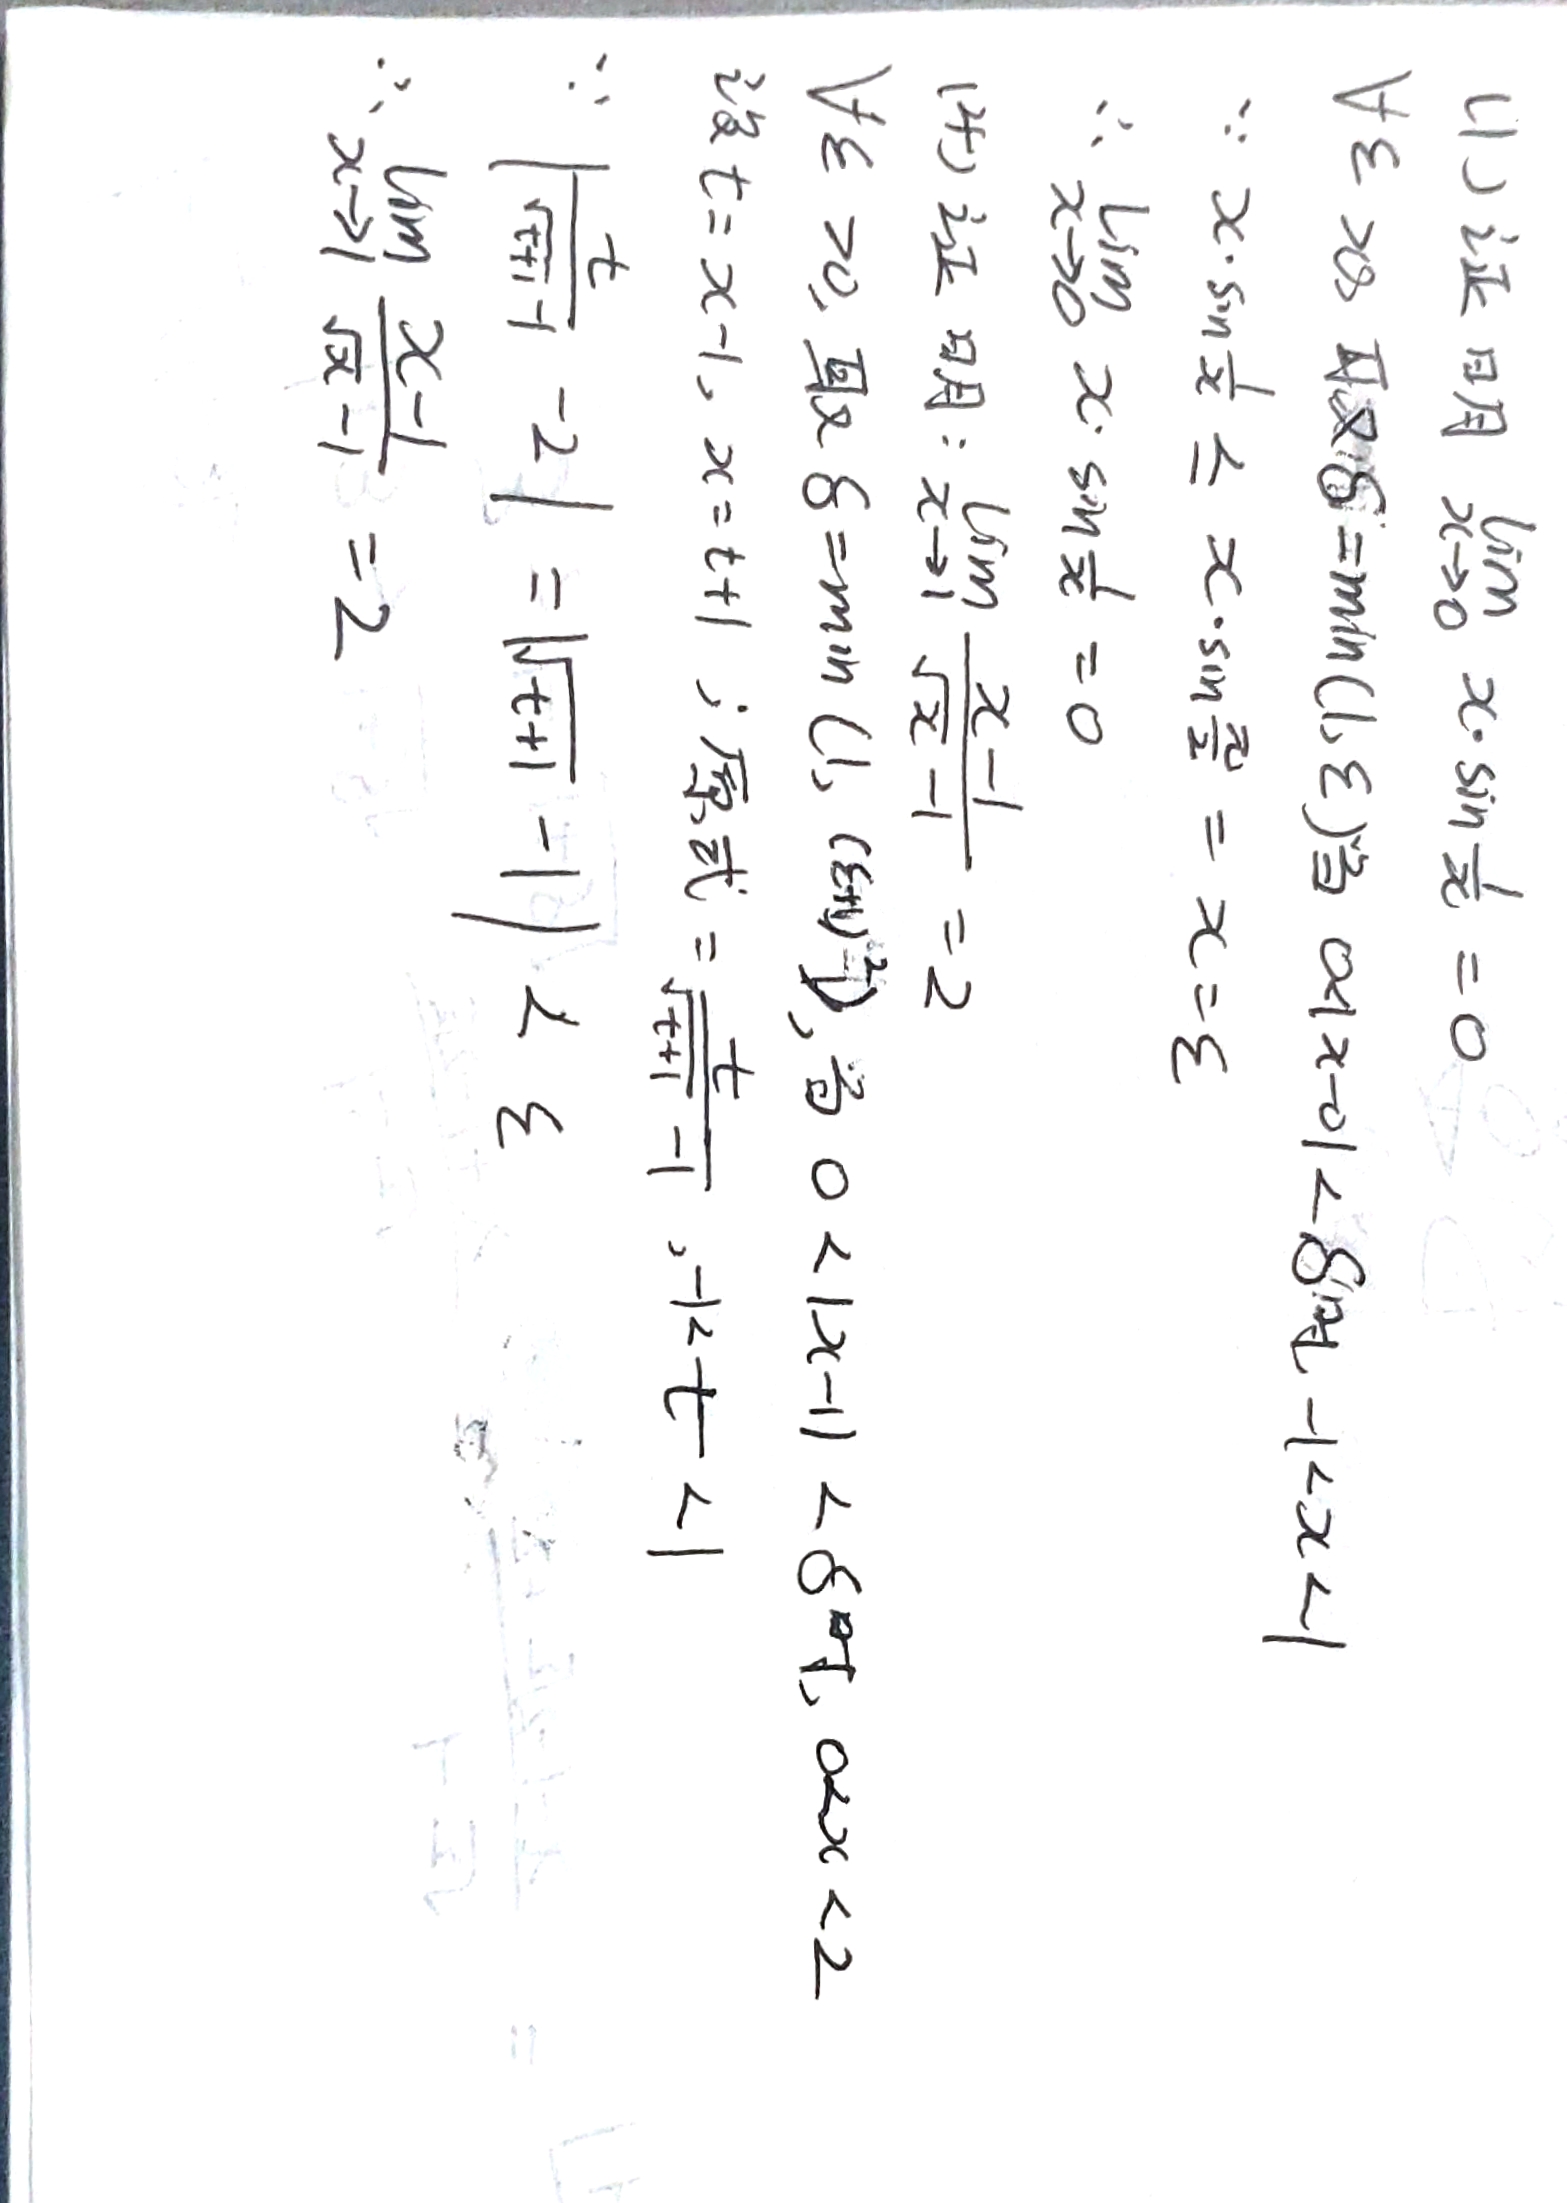 (1) 证明 lim x→0 x·sin 1/x = 0
∀ε>0 取δ=min(1,ε)当 0<|x-0|<δ时 -1<x<1
∵ x·sin 1/x ≤ x·sin π/2 = x = ε
∴ lim x→0 x·sin 1/x = 0
(4) 证明: lim x→1 (x-1)/(√x -1) = 2
∀ε>0, 取δ=min(1, (ε+1)²-1), 当 0<|x-1|<δ时, 0<x<2
设 t=x-1, x=t+1 ; 原式 = t/(√(t+1) -1) , -1<t<1
∵ |t/(√(t+1) -1) -2| = |√(t+1) -1| < ε
∴ lim x→1 (x-1)/(√x -1) = 2